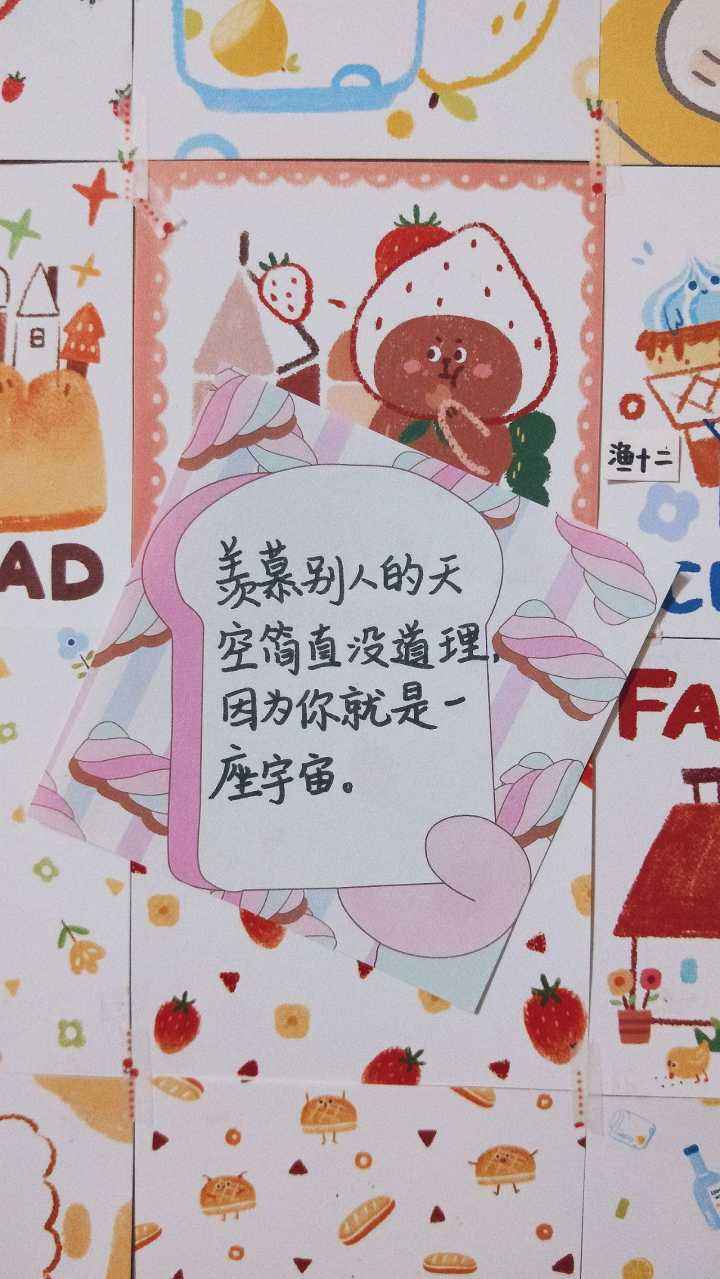 渔十二
AD
羡慕别人的天
空简直没道理,
因为你就是一
座宇宙。
FA